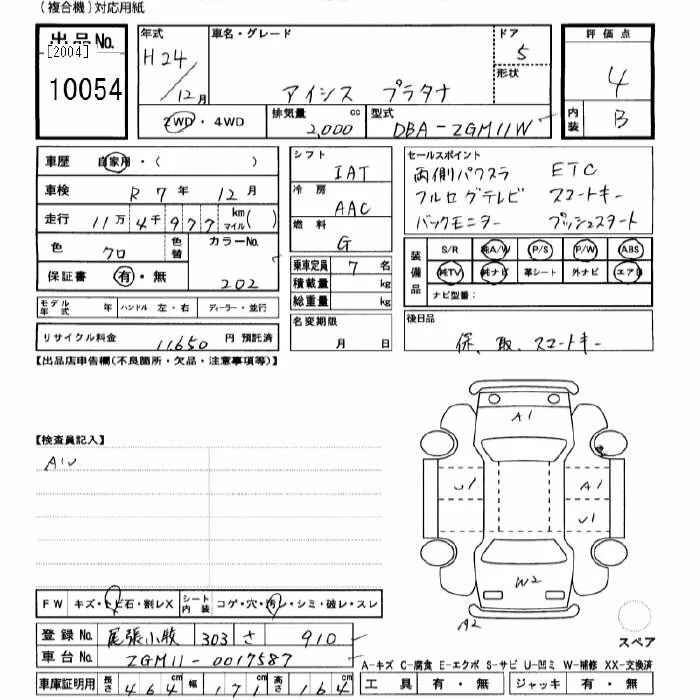 (複合機)対応用紙
出品No.
[2004]
10054
年式
H24/12月
車名・グレード
アイシス プラタナ
ドア
5
形状
評価点
4
内装
B
2WD・4WD
排気量 cc
2,000
型式
DBA-ZGM11W
車歴 自家用・( )
車検 R7年 12月
走行 11万4千977 km マイル( )
色 クロ
色替
カラーNo.
202
保証書 有・無
モデル年式 年 ハンドル 左・右 ディーラー・並行
リサイクル料金 11,650 円 預託済
シフト
IAT
冷房
AAC
燃料
G
乗車定員 7 名
積載量 kg
総重量 kg
名変期限
月 日
セールスポイント
両側パワスラ ETC
フルセグテレビ スマートキー
バックモニター プッシュスタート
装備品
S/R 純A/W P/S P/W ABS
純TV 純ナビ 革シート 外ナビ エアB
ナビ型番:
後日品
保、取、スマートキー
【出品店申告欄(不良箇所・欠品・注意事項等)】
【検査員記入】
A1
A1
U1
A1
U1
W2
A2
スペア
FW キズ・トビ石・割レX シート内装 コゲ・穴・汚レ・シミ・破レ・スレ
登録No. 尾張小牧 303 さ 910
車台No. ZGM11-0017587
車庫証明用 長さ 464cm 幅 171cm 高さ 164cm
A-キズ C-腐食 E-エクボ S-サビ U-凹ミ W-補修 XX-交換済
工具 有・無 ジャッキ 有・無